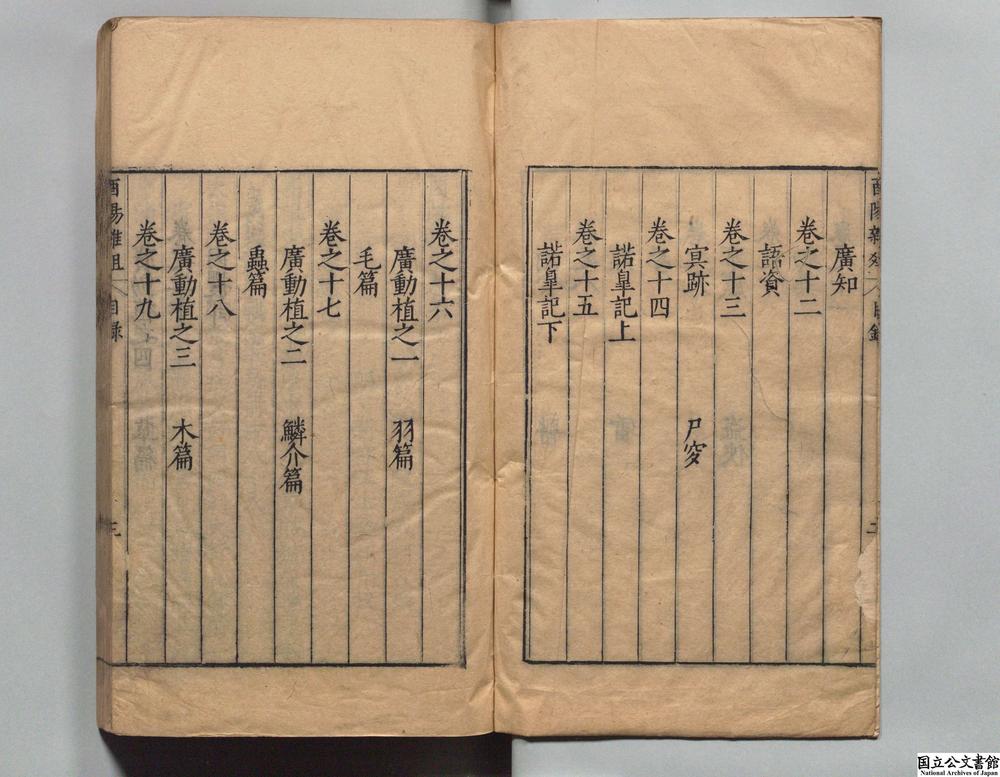 廣知
卷之十二
語資
卷之十三
冥跡 尸穸
卷之十四
諾皐記上
卷之十五
諾皐記下
卷之十六
廣動植之一 羽篇
毛篇
卷之十七
廣動植之二 鱗介篇
蟲篇
卷之十八
廣動植之三 木篇
卷之十九
酉陽雜俎 目録 三
国立公文書館
National Archives of Japan